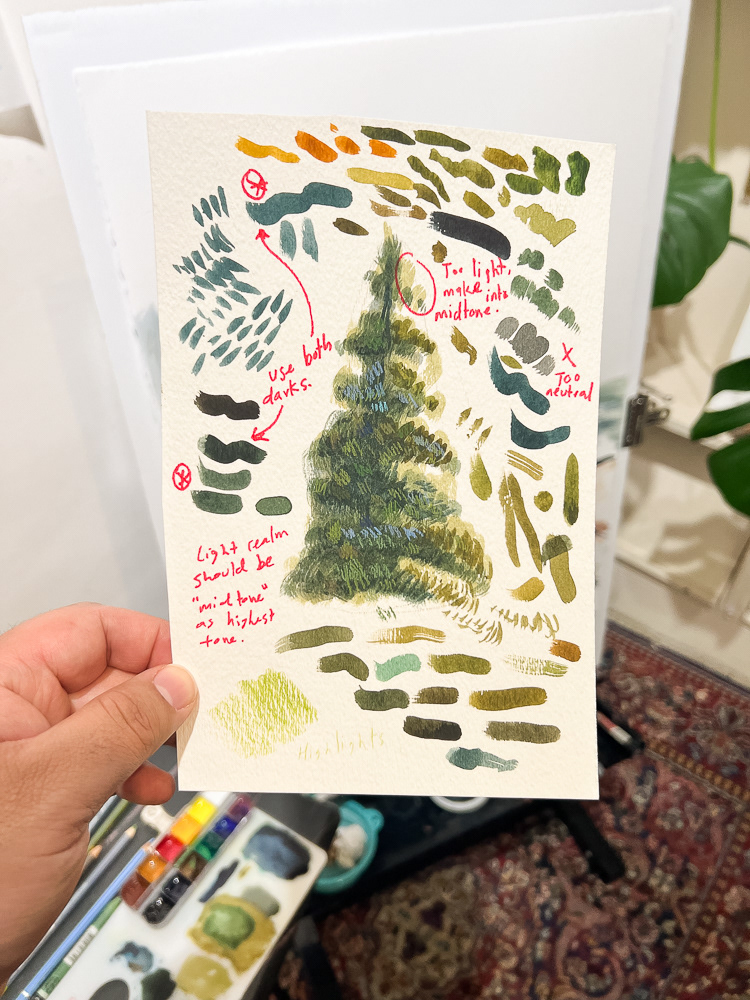 Too light,
make into
midtone.
X
Too
neutral
use both
darks.
Light realm
should be
"midtone"
as highest
tone.
Highlights